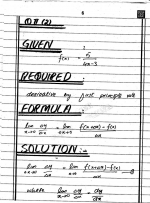 Q # (2)
GIVEN :
f(x) = 5 / 2x-3
REQUIRED :
derivative by first principle rule
FORMULA :
lim Δx→0 Δy/Δx = lim Δx→0 f(x+Δx) - f(x) / Δx
SOLUTION :-
lim Δx→0 Δy/Δx = lim Δx→0 f(x+Δx) - f(x) / Δx
where lim Δx→0 Δy/Δx = dy/dx